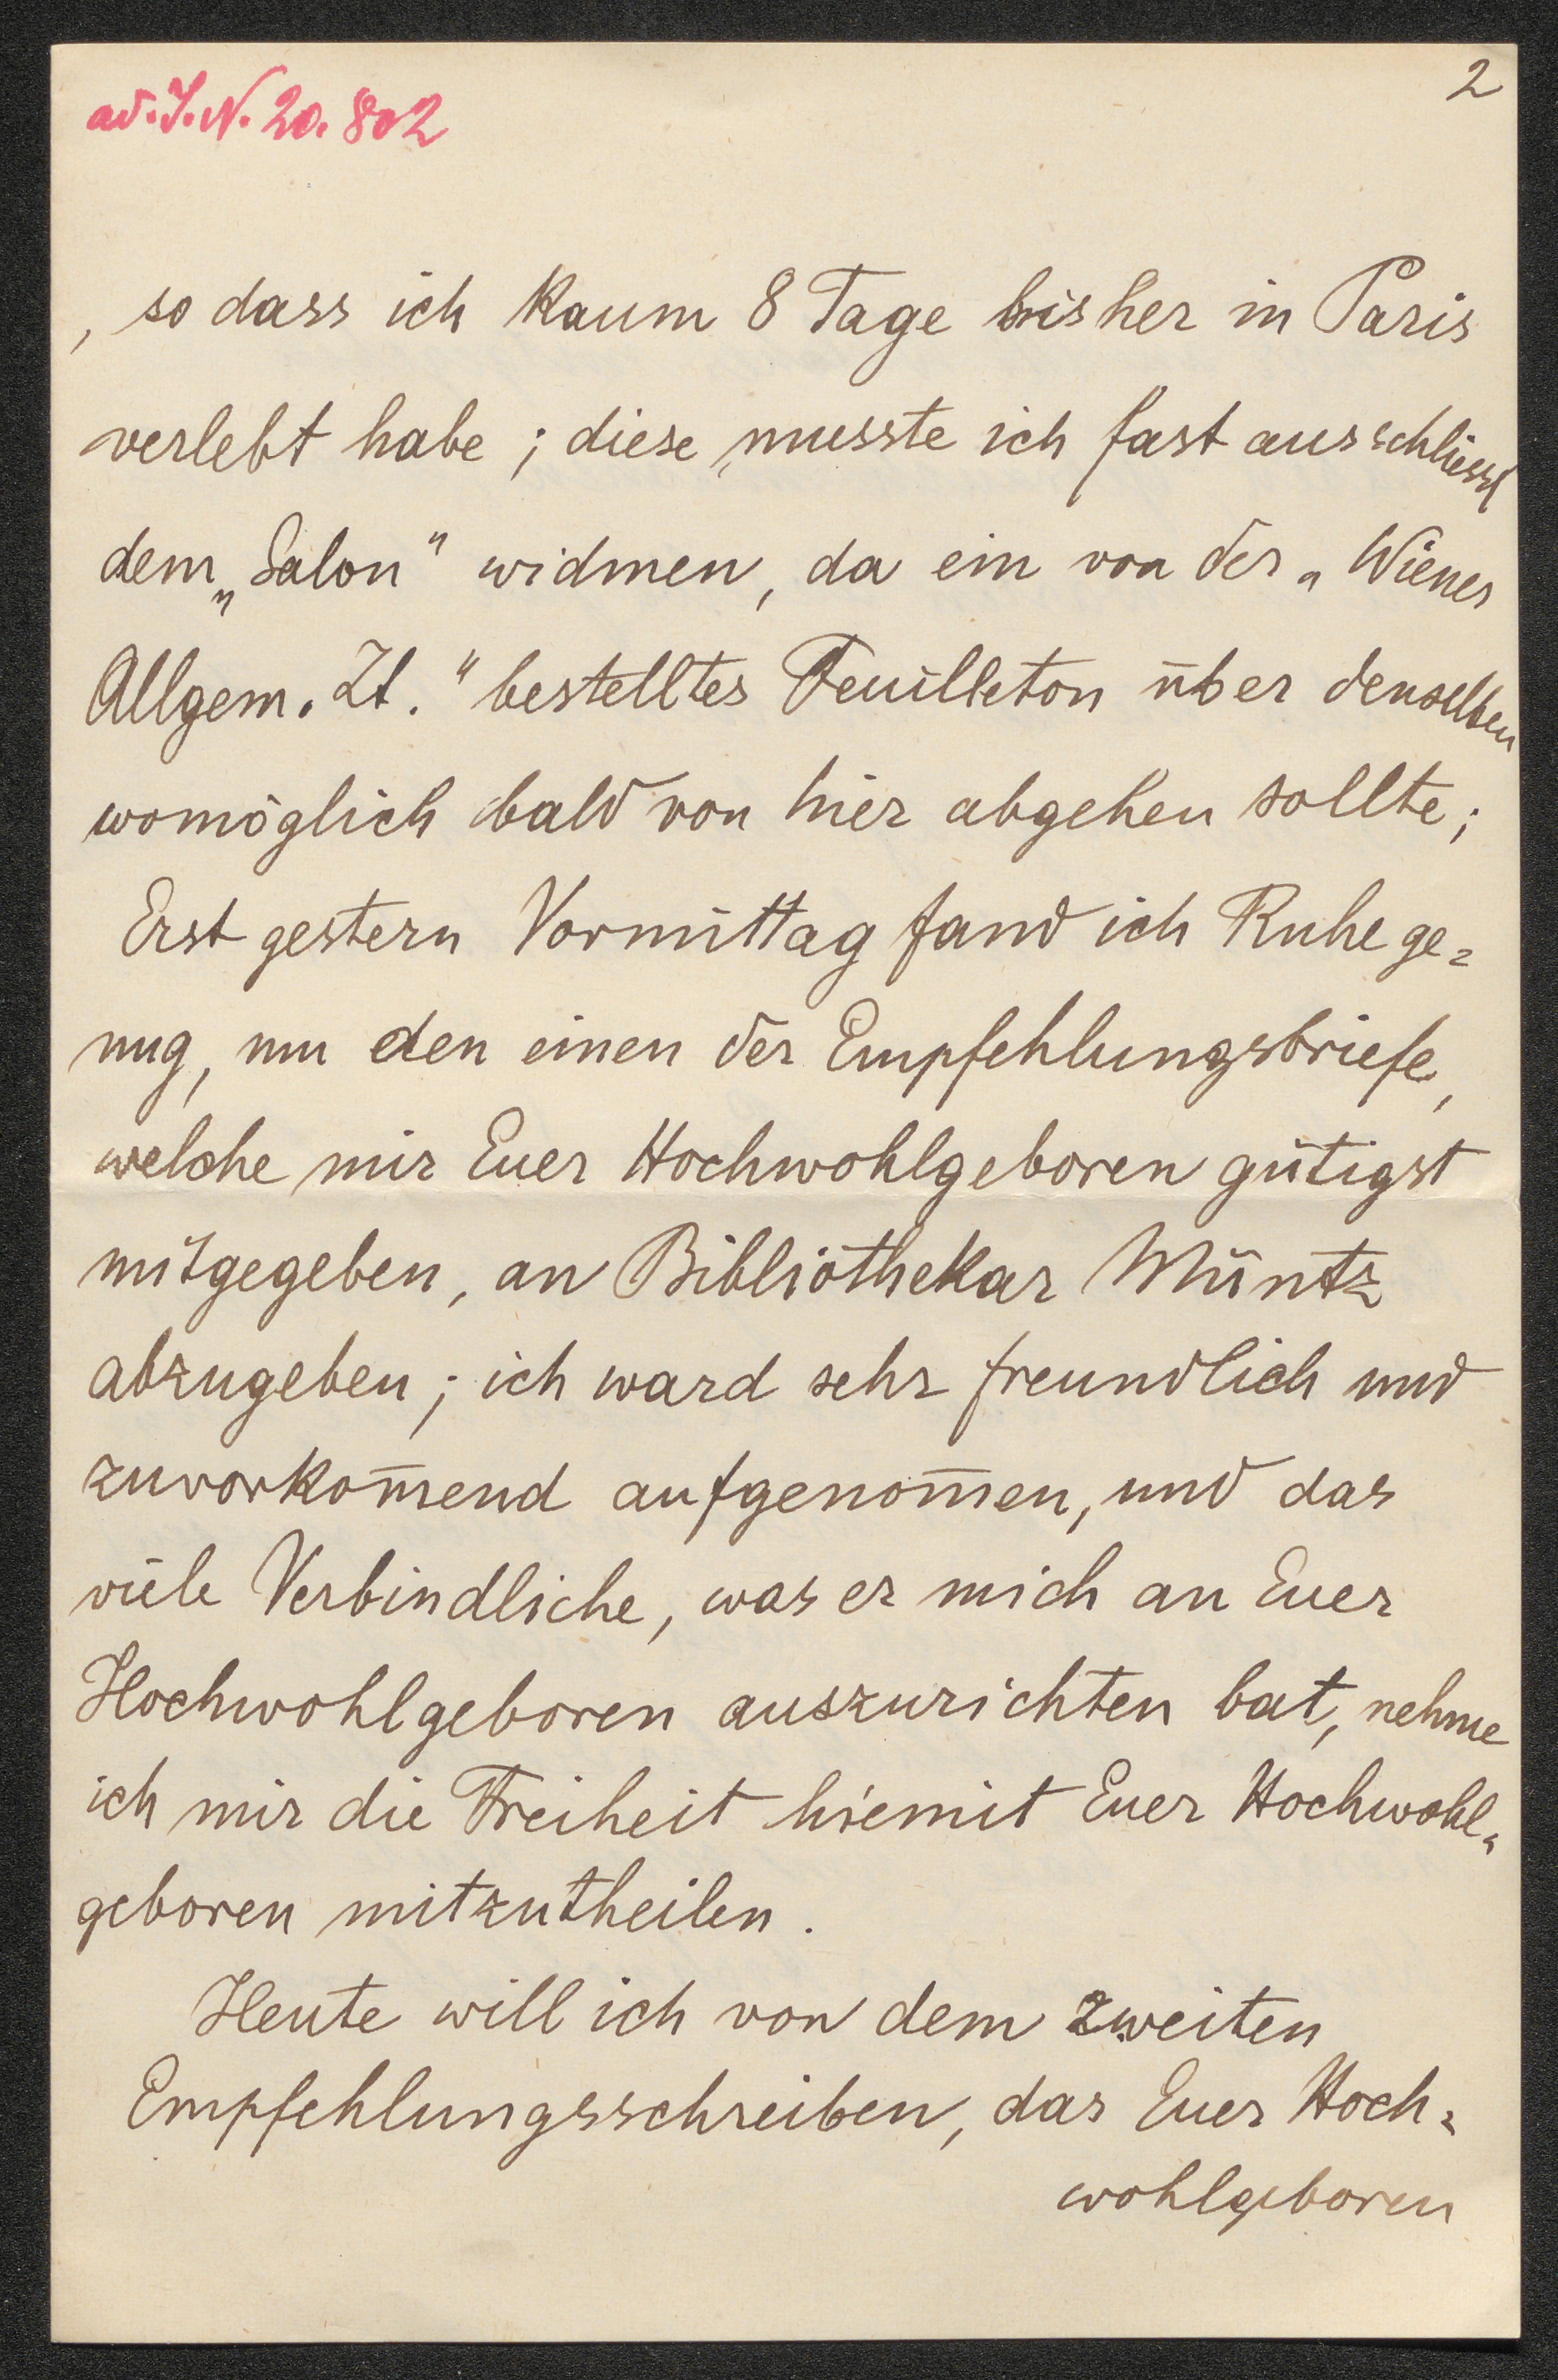 ad. I. N. 20.802
2
, so dass ich kaum 8 Tage bisher in Paris
verlebt habe; diese musste ich fast ausschliessl
dem „Salon“ widmen, da ein von der „Wiener
Allgem. Zt.“ bestelltes Feuilleton über denselben
womöglich bald von hier abgehen sollte;
Erst gestern Vormittag fand ich Ruhe ge=
nug, um den einen der Empfehlungsbriefe,
welche mir Euer Hochwohlgeboren gütigst
mitgegeben, an Bibliothekar Müntz
abzugeben; ich ward sehr freundlich und
zuvorkom̅end aufgenom̅en, und das
viele Verbindliche, was er mich an Euer
Hochwohlgeboren auszurichten bat, nehme
ich mir die Freiheit hiemit Euer Hochwohl=
geboren mitzutheilen.
Heute will ich von dem zweiten
Empfehlungsschreiben, das Euer Hoch=
wohlgeboren